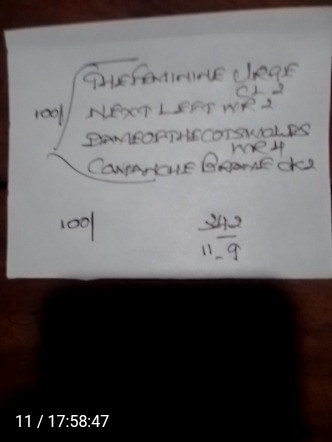 THE FEMININE URGE
CL 2
100/ NEXT LEFT WR 2
DAME OF THE COTSWOLDS
WR 4
COMANCHE BRAVE CK2
100/
342
11-9
11 / 17:58:47